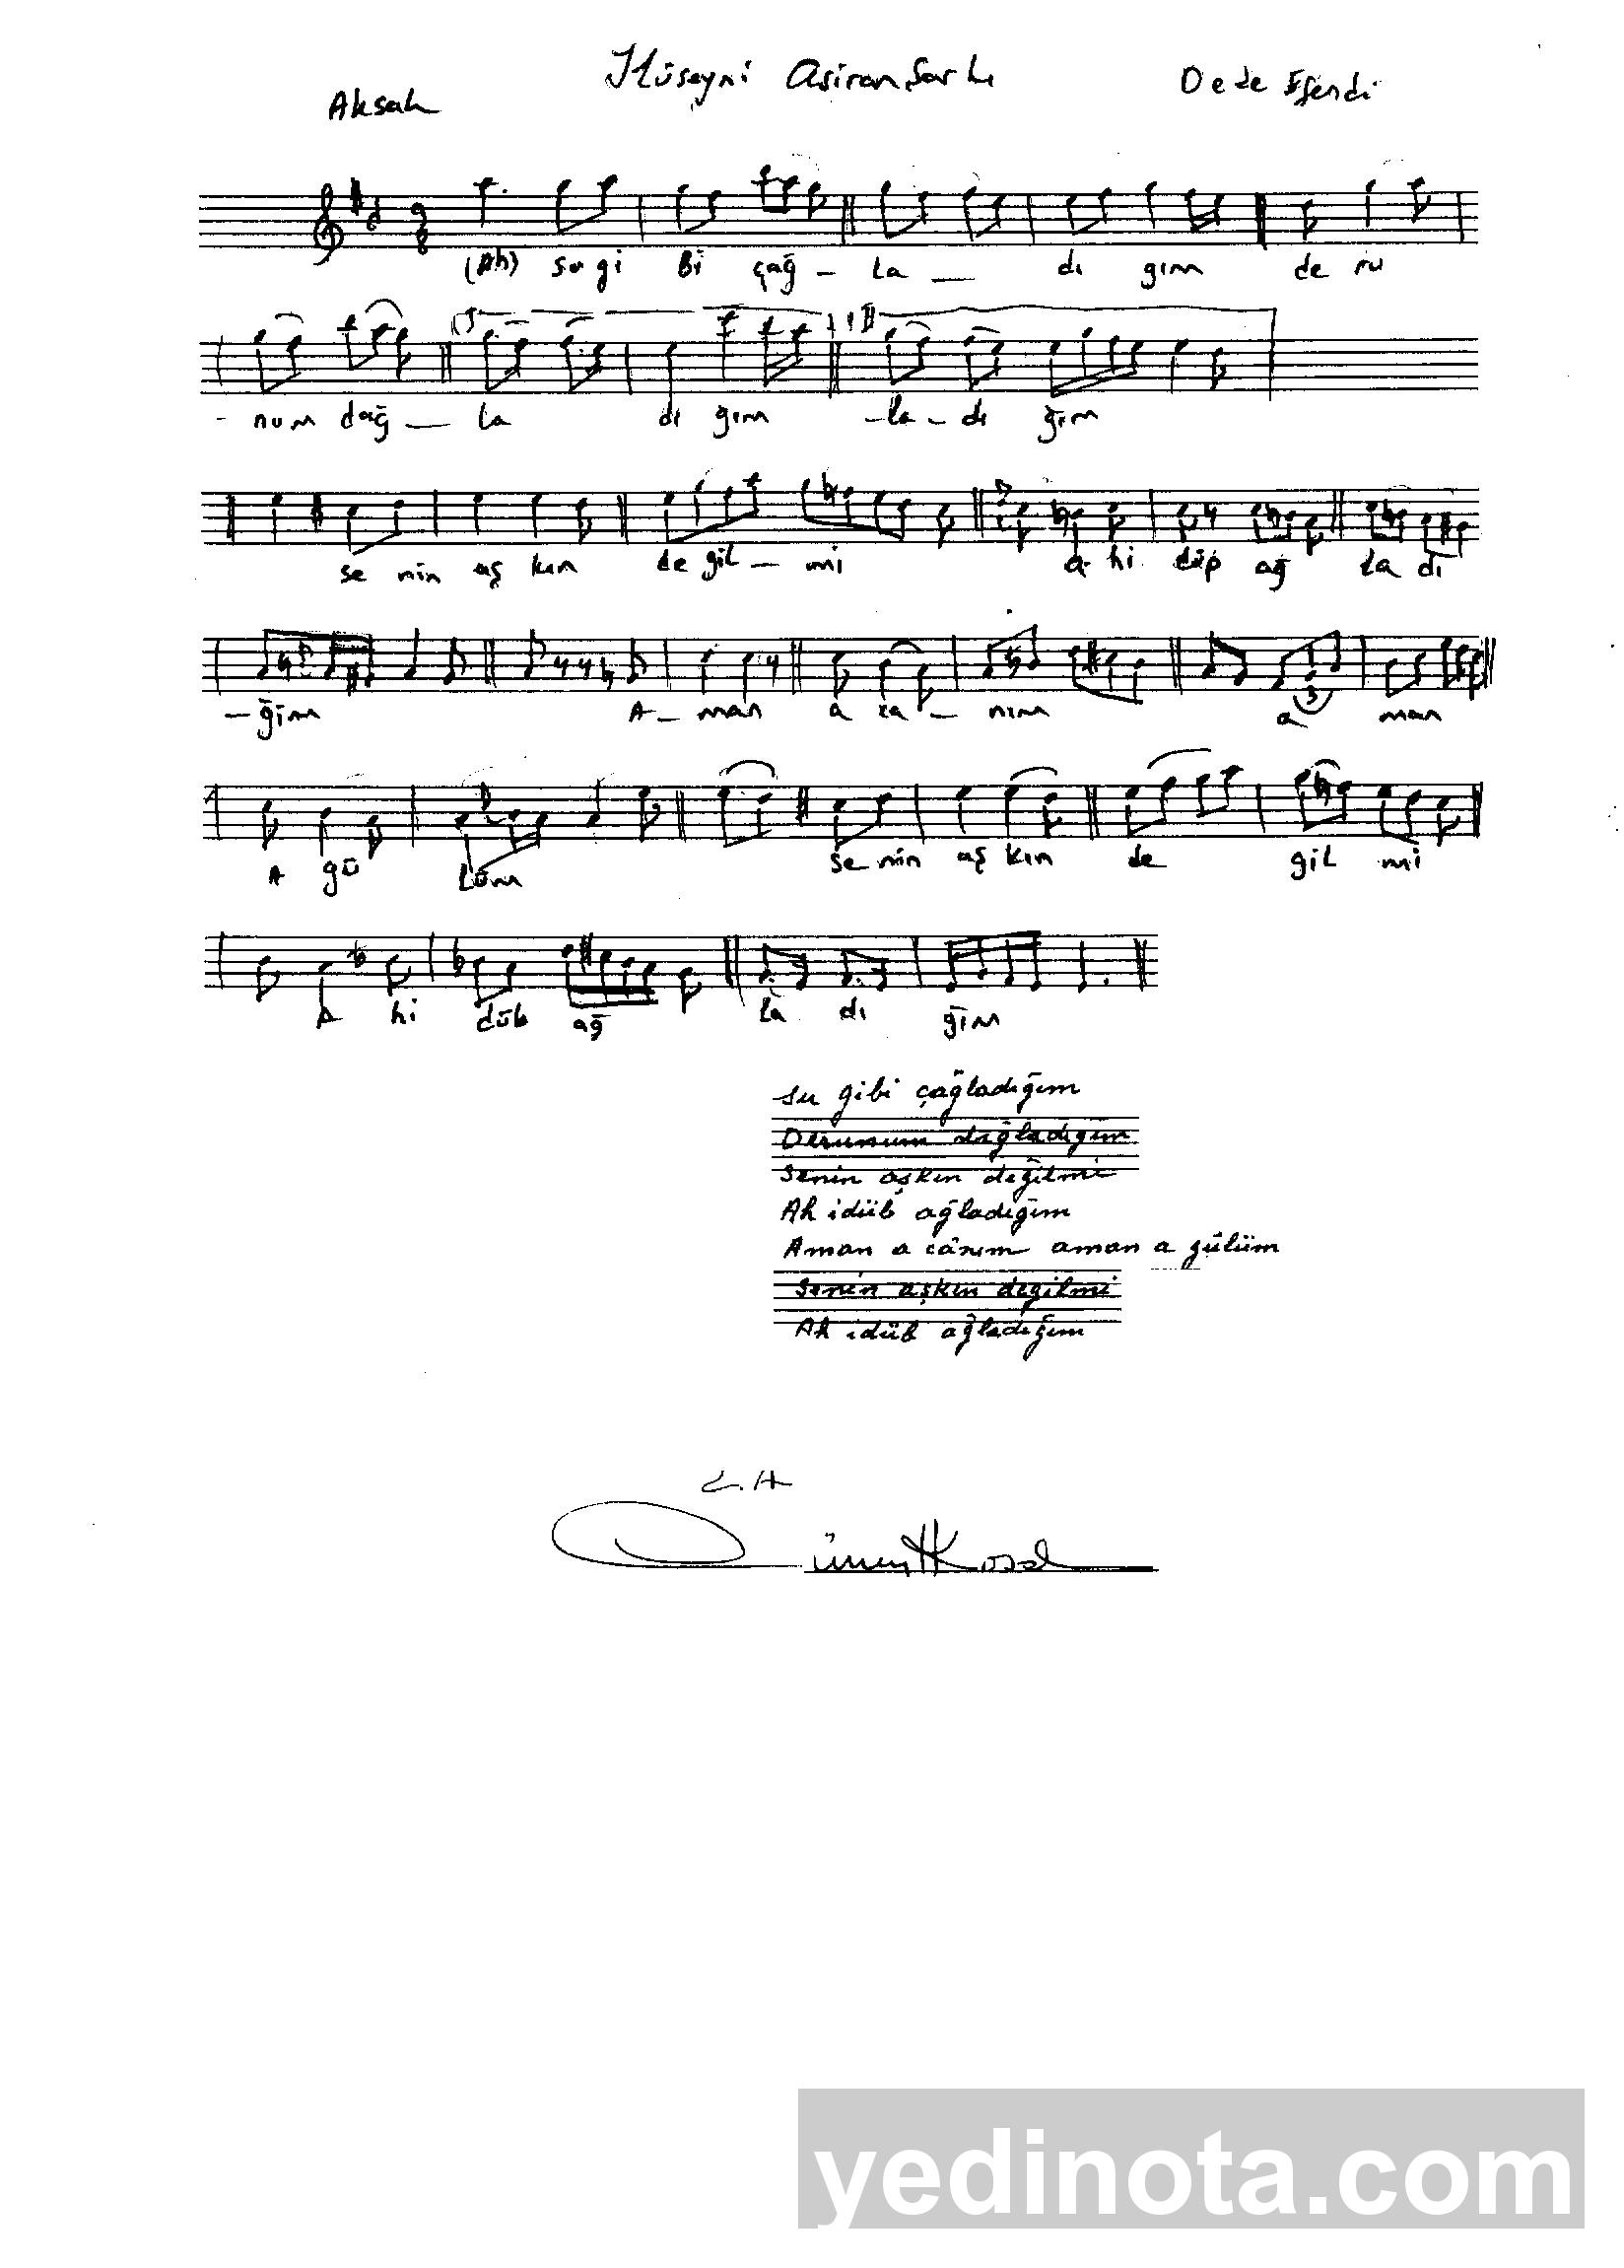 Hüseyni Aşiran Şarkı
Aksak
Dede Efendi
9
8
(Ah) su gi bi çağ - la — dı gım de ru
- num dağ — la dı ğım - la - dı ğım
se nin aş kın de gil - mi a hi düp ağ la dı
- ğım A - man a ca - nım a man
A gü lüm se nin aş kın de gil mi
A hi düb ağ la dı ğım
3
Su gibi çağladığım
Derunum dağladığım
Senin aşkın değilmi
Ah idüb ağladığım
Aman a cânım aman a gülüm
Senin aşkın değilmi
Ah idüb ağladığım
yedinota.com